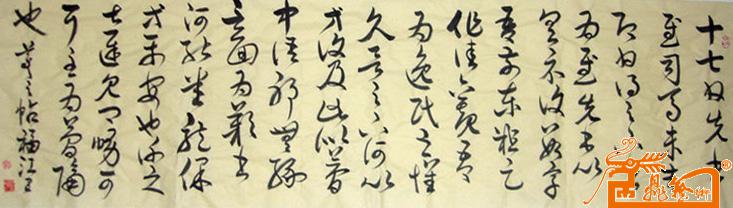 十七日先書
郗司馬未去
即日得足下
為慰先書以
具示復數字
吾前東粗足
作佳觀吾
為逸民之懷
久矣足下何以
方復及此似夢
中語耶無緣
言面為歎書
何能悉龍保
等平安也謝之
甚遲見卿舅可
耳至為簡隔
也